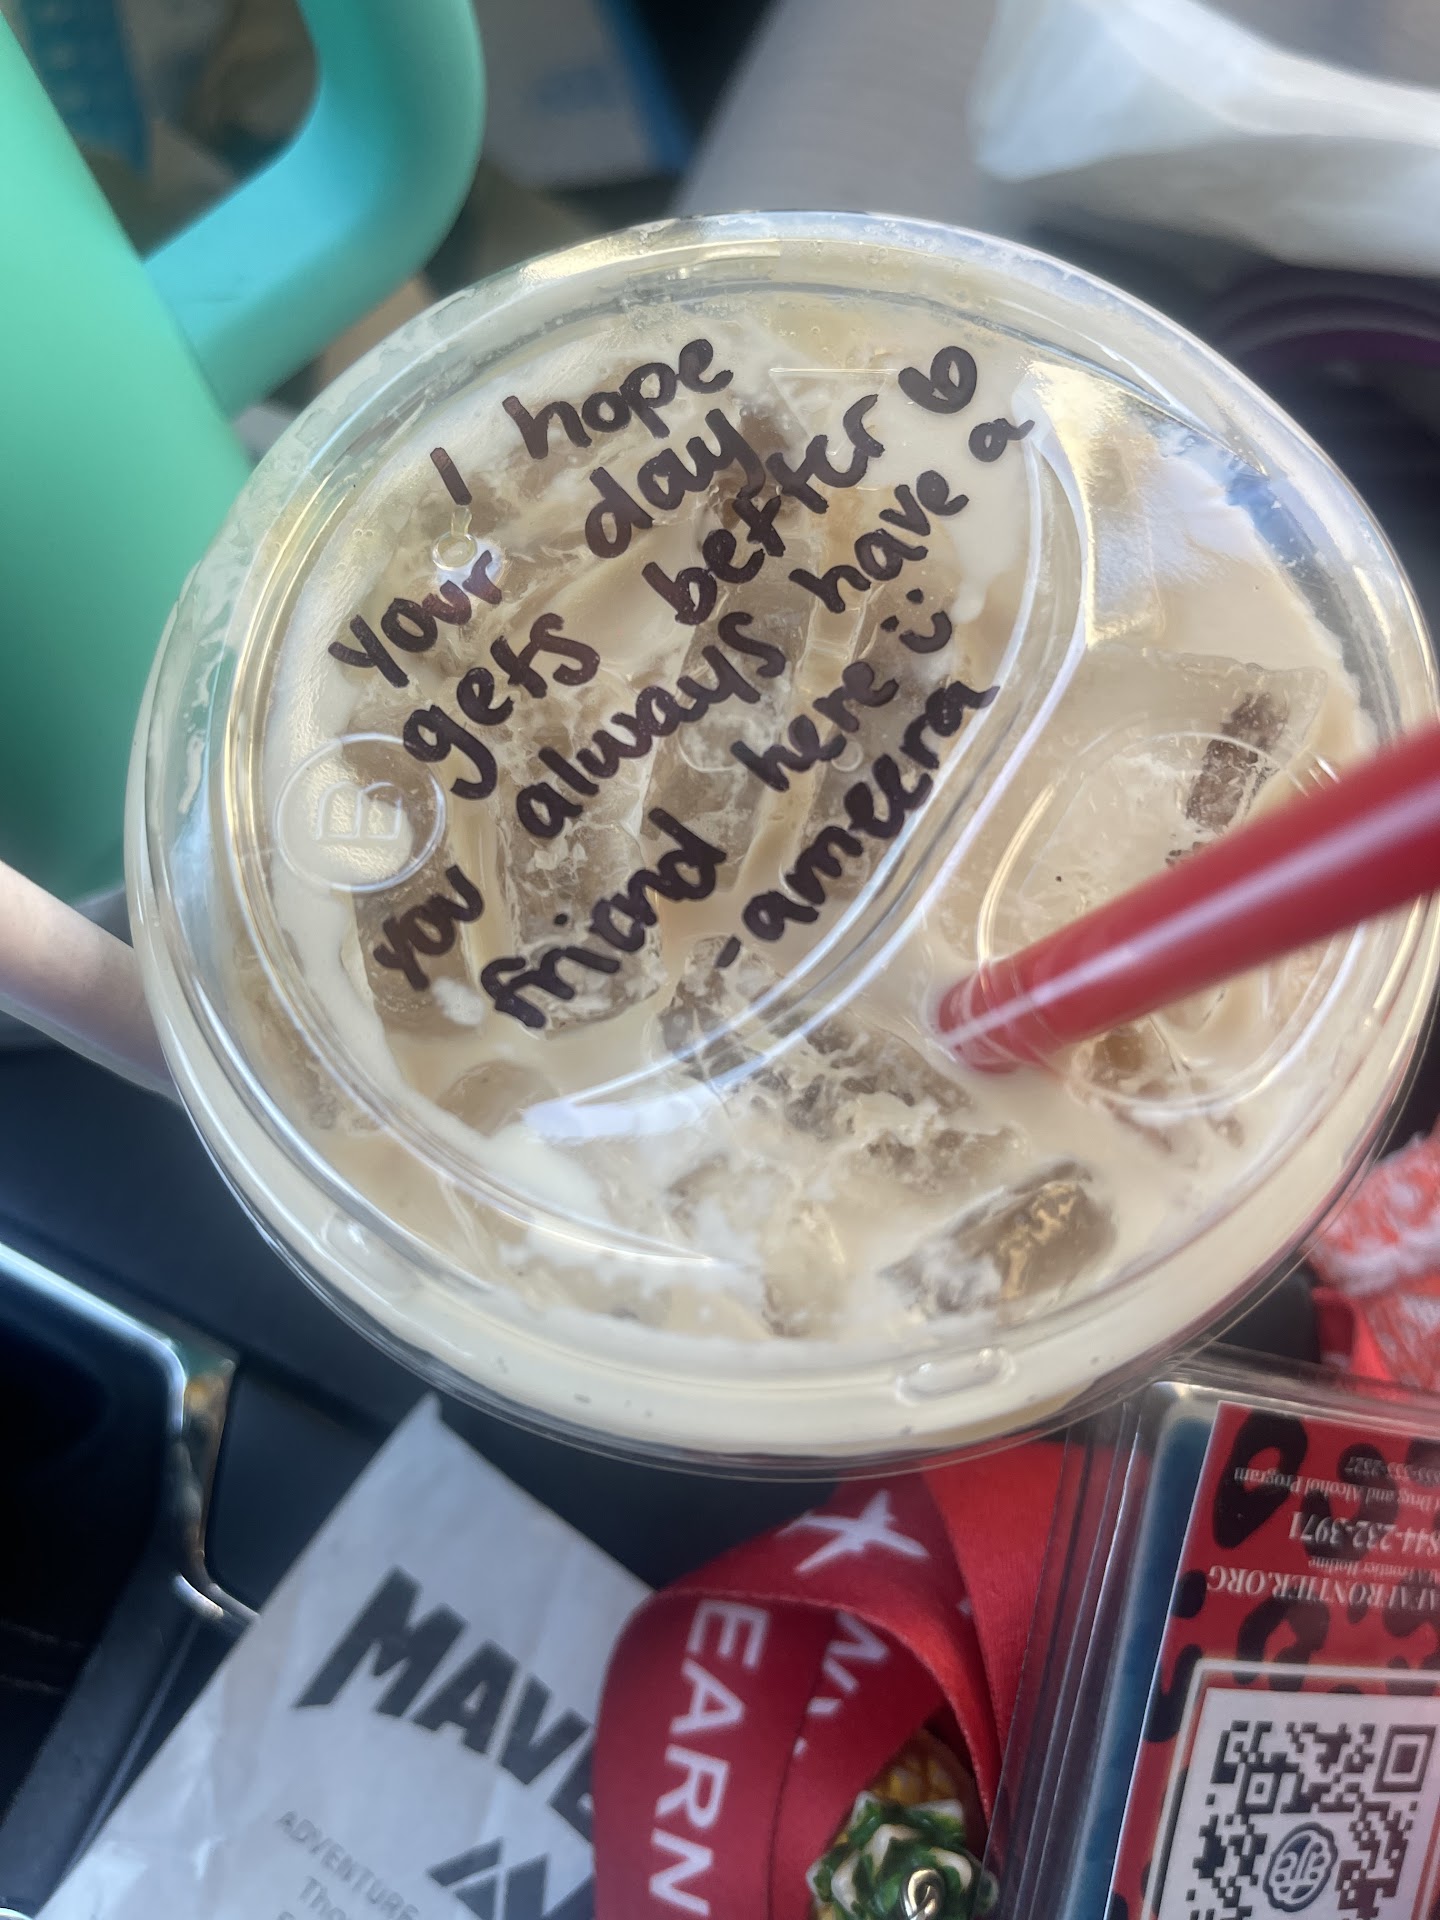 I hope
your day
gets better
you always have a
friend here
- ameera
B
MAV
ADVENTURE
EARN
Drug and Alcohol Program
844-232-3971
Frontier Hotline
AFAFRONTIER.ORG
BTB